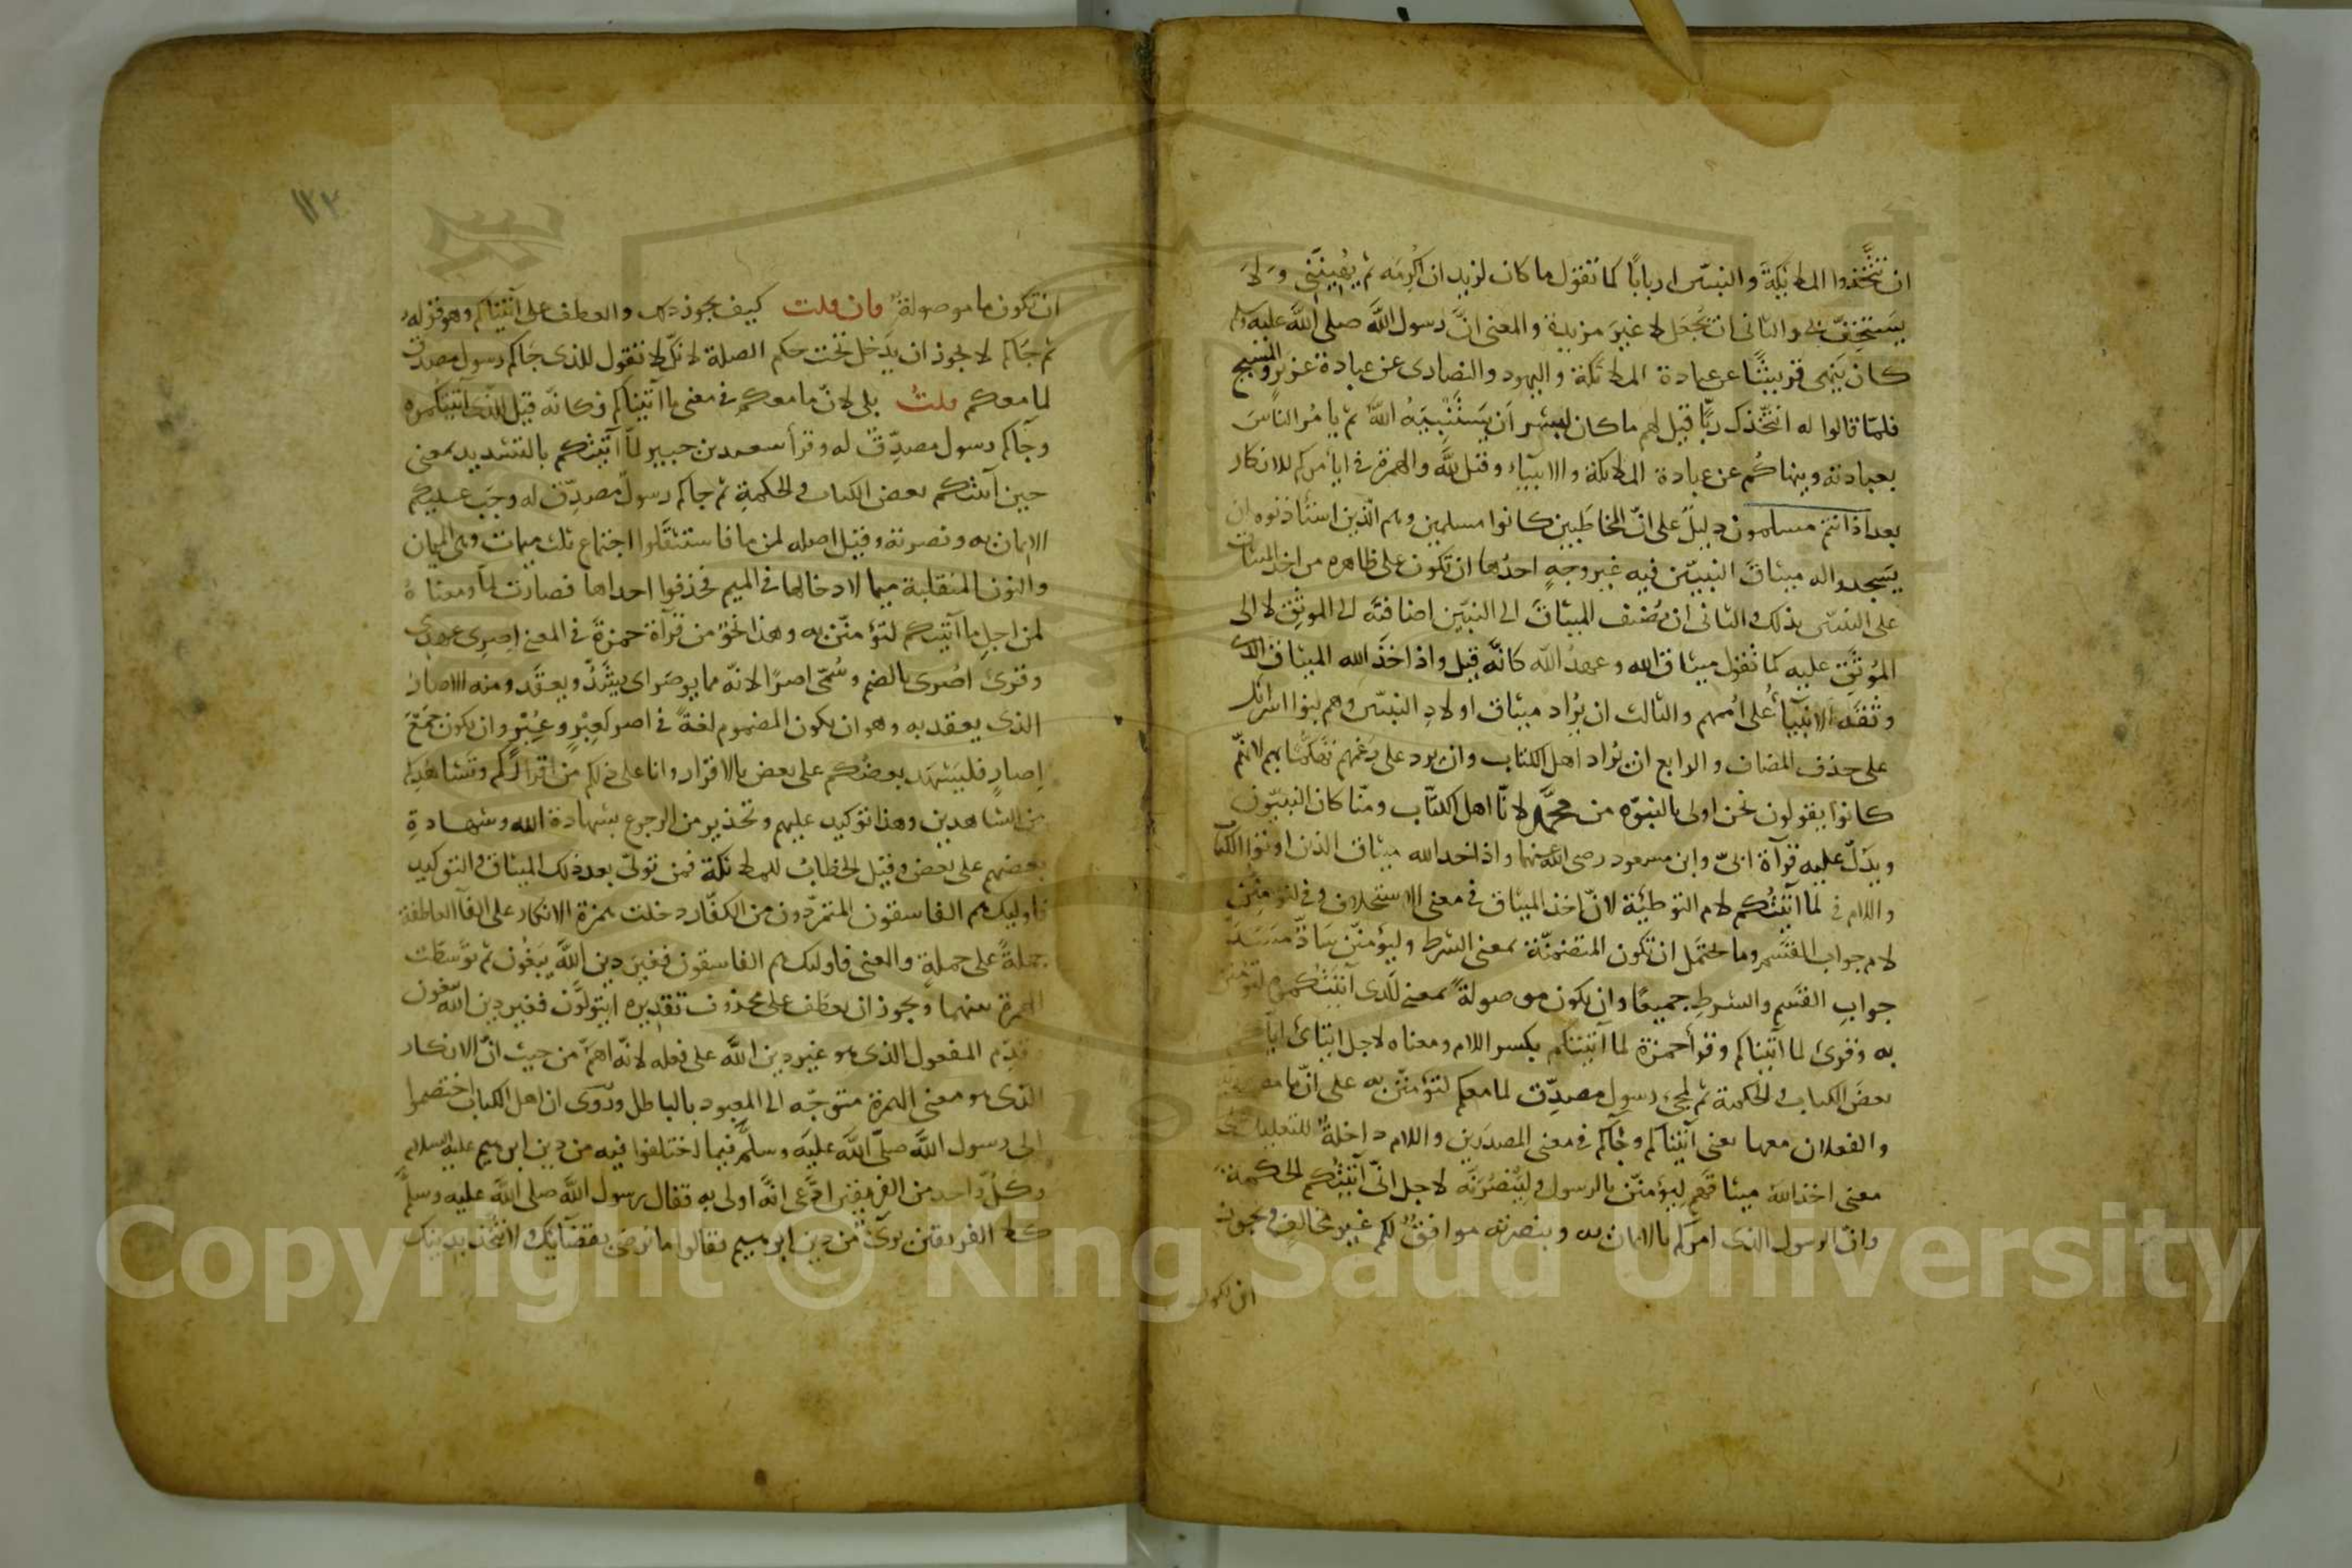 ان تتخذوا الملائكة والنبيين اربابا كما تقول ما كان لزيد ان اكرمه ثم يهينني ولا
يستخف بي والثاني ان تجعل لا غير مزيدة والمعنى ان رسول الله صلى الله عليه وسلم
كان ينهى قريشا عن عبادة الملائكة واليهود والنصارى عن عبادة عزير والمسيح
فلما قالوا له انتخذك ربا قيل لهم ما كان لبشر ان يستنبيه الله ثم يأمر الناس
بعبادته وينهاكم عن عبادة الملائكة والانبياء وقيل لله والهمزة في ايأمركم للانكار
بعد اذ انتم مسلمون دليل على ان المخاطبين كانوا مسلمين وهم الذين استأذنوه ان
يسجدوا له ميثاق النبيين فيه غير وجه احدها ان تكون على ظاهره من اخذ الميثاق
على النبيين بذلك والثاني ان يضيف الميثاق الى النبيين اضافته الى الموثق لا الى
الموثق عليه كما تقول ميثاق الله وعهد الله كانه قيل واذ اخذ الله الميثاق الذي
وثقه الانبياء على اممهم والثالث ان يراد ميثاق اولاد النبيين وهم بنوا اسرائيل
على حذف المضاف والرابع ان يراد اهل الكتاب وان يرد على زعمهم تهكما بهم لانهم
كانوا يقولون نحن اولى بالنبوة من محمد لانا اهل الكتاب ومنا كان النبيون
ويدل عليه قرآة ابي وابن مسعود رضى الله عنهما واذ اخذ الله ميثاق الذين اوتوا الكتاب
واللام في لما آتيتكم لام التوطئة لان اخذ الميثاق في معنى الاستحلاف وفي لتؤمنن
لام جواب القسم وما يحتمل ان تكون المتضمنة بمعنى الشرط وليؤمنن ساد مسد
جواب القسم والشرط جميعا وان يكون موصولة بمعنى للذي آتيتكموه لتؤمنن
به وقرئ لما آتيناكم وقرأ حمزة لما آتيتكم بكسر اللام ومعناه لاجل ايتائي اياكم
بعض الكتاب والحكمة ثم لمجئ رسول مصدق لما معكم لتؤمنن به على ان ما مصدرية
والفعلان معها يعنى آتيناكم وجاكم في معنى المصدرين واللام داخلة للتعليل على
معنى اخذ الله ميثاقهم ليؤمنن بالرسول ولينصرنه لاجل اني آتيتكم الحكمة
وان الرسول الذي امركم بالايمان به وبنصرته موافق لكم غير مخالف ويجوز
ان تكون
١٢٢
ان تكون ما موصولة فان قلت كيف يجوز ذلك والعطف على آتيناكم وهو قوله
ثم جاكم لا يجوز ان يدخل تحت حكم الصلة لانك لا تقول للذي جاكم رسول مصدق
لما معكم قلت بلى لان ما معكم في معنى ما آتيناكم فكانه قيل للذي آتيتكموه
وجاكم رسول مصدق له وقرأ سعيد بن جبير لما آتيتكم بالتشديد بمعنى
حين آتيتكم بعض الكتاب والحكمة ثم جاكم رسول مصدق له وجب عليكم
الايمان به ونصرته وقيل اصله لمن ما فاستثقلوا اجتماع ثلث ميمات وهى الميمان
والنون المنقلبة ميما لادخالها في الميم فحذفوا احداها فصارت لما ومعناه
لمن اجل ما آتيتكم لتؤمنن به وهذا نحو من قرآة حمزة في المعنى اصرى عهدى
وقرئ اصرى بالضم وسمى اصرا لانه مما يوصر اى يشدد ويعقد ومنه الاصار
الذي يعقد به وهو ان يكون المضموم لغة في اصر كعبر وعبر وان يكون جمع
اصار فليشهد بعضكم على بعض بالاقرار وانا على ذلكم من اقراركم وتشاهدكم
من الشاهدين وهذا توكيد عليهم وتحذير من الرجوع بشهادة الله وشهادة
بعضهم على بعض وقيل الخطاب للملائكة فمن تولى بعد ذلك الميثاق والتوكيد
فاوليك هم الفاسقون المتمردون من الكفار دخلت همزة الانكار على الفآ العاطفة
جملة على جملة والمعنى فاوليك هم الفاسقون فغير دين الله يبغون ثم توسطت
الهمزة بينهما ويجوز ان يعطف على محذوف تقديره ايتولون فغير دين الله يبغون
وقدم المفعول الذي هو غير دين الله على فعله لانه اهم من حيث ان الانكار
الذي هو معنى الهمزة متوجه الى المعبود بالباطل وروى ان اهل الكتاب اختصموا
الى رسول الله صلى الله عليه وسلم فيما اختلفوا فيه من دين ابرهيم عليه السلام
وكل واحد من الفريقين ادعى انه اولى به فقال رسول الله صلى الله عليه وسلم
كلا الفريقين برئ من دين ابرهيم فقالوا ما نرضى بقضآيك ولا نأخذ بدينك
Copyright © King Saud University